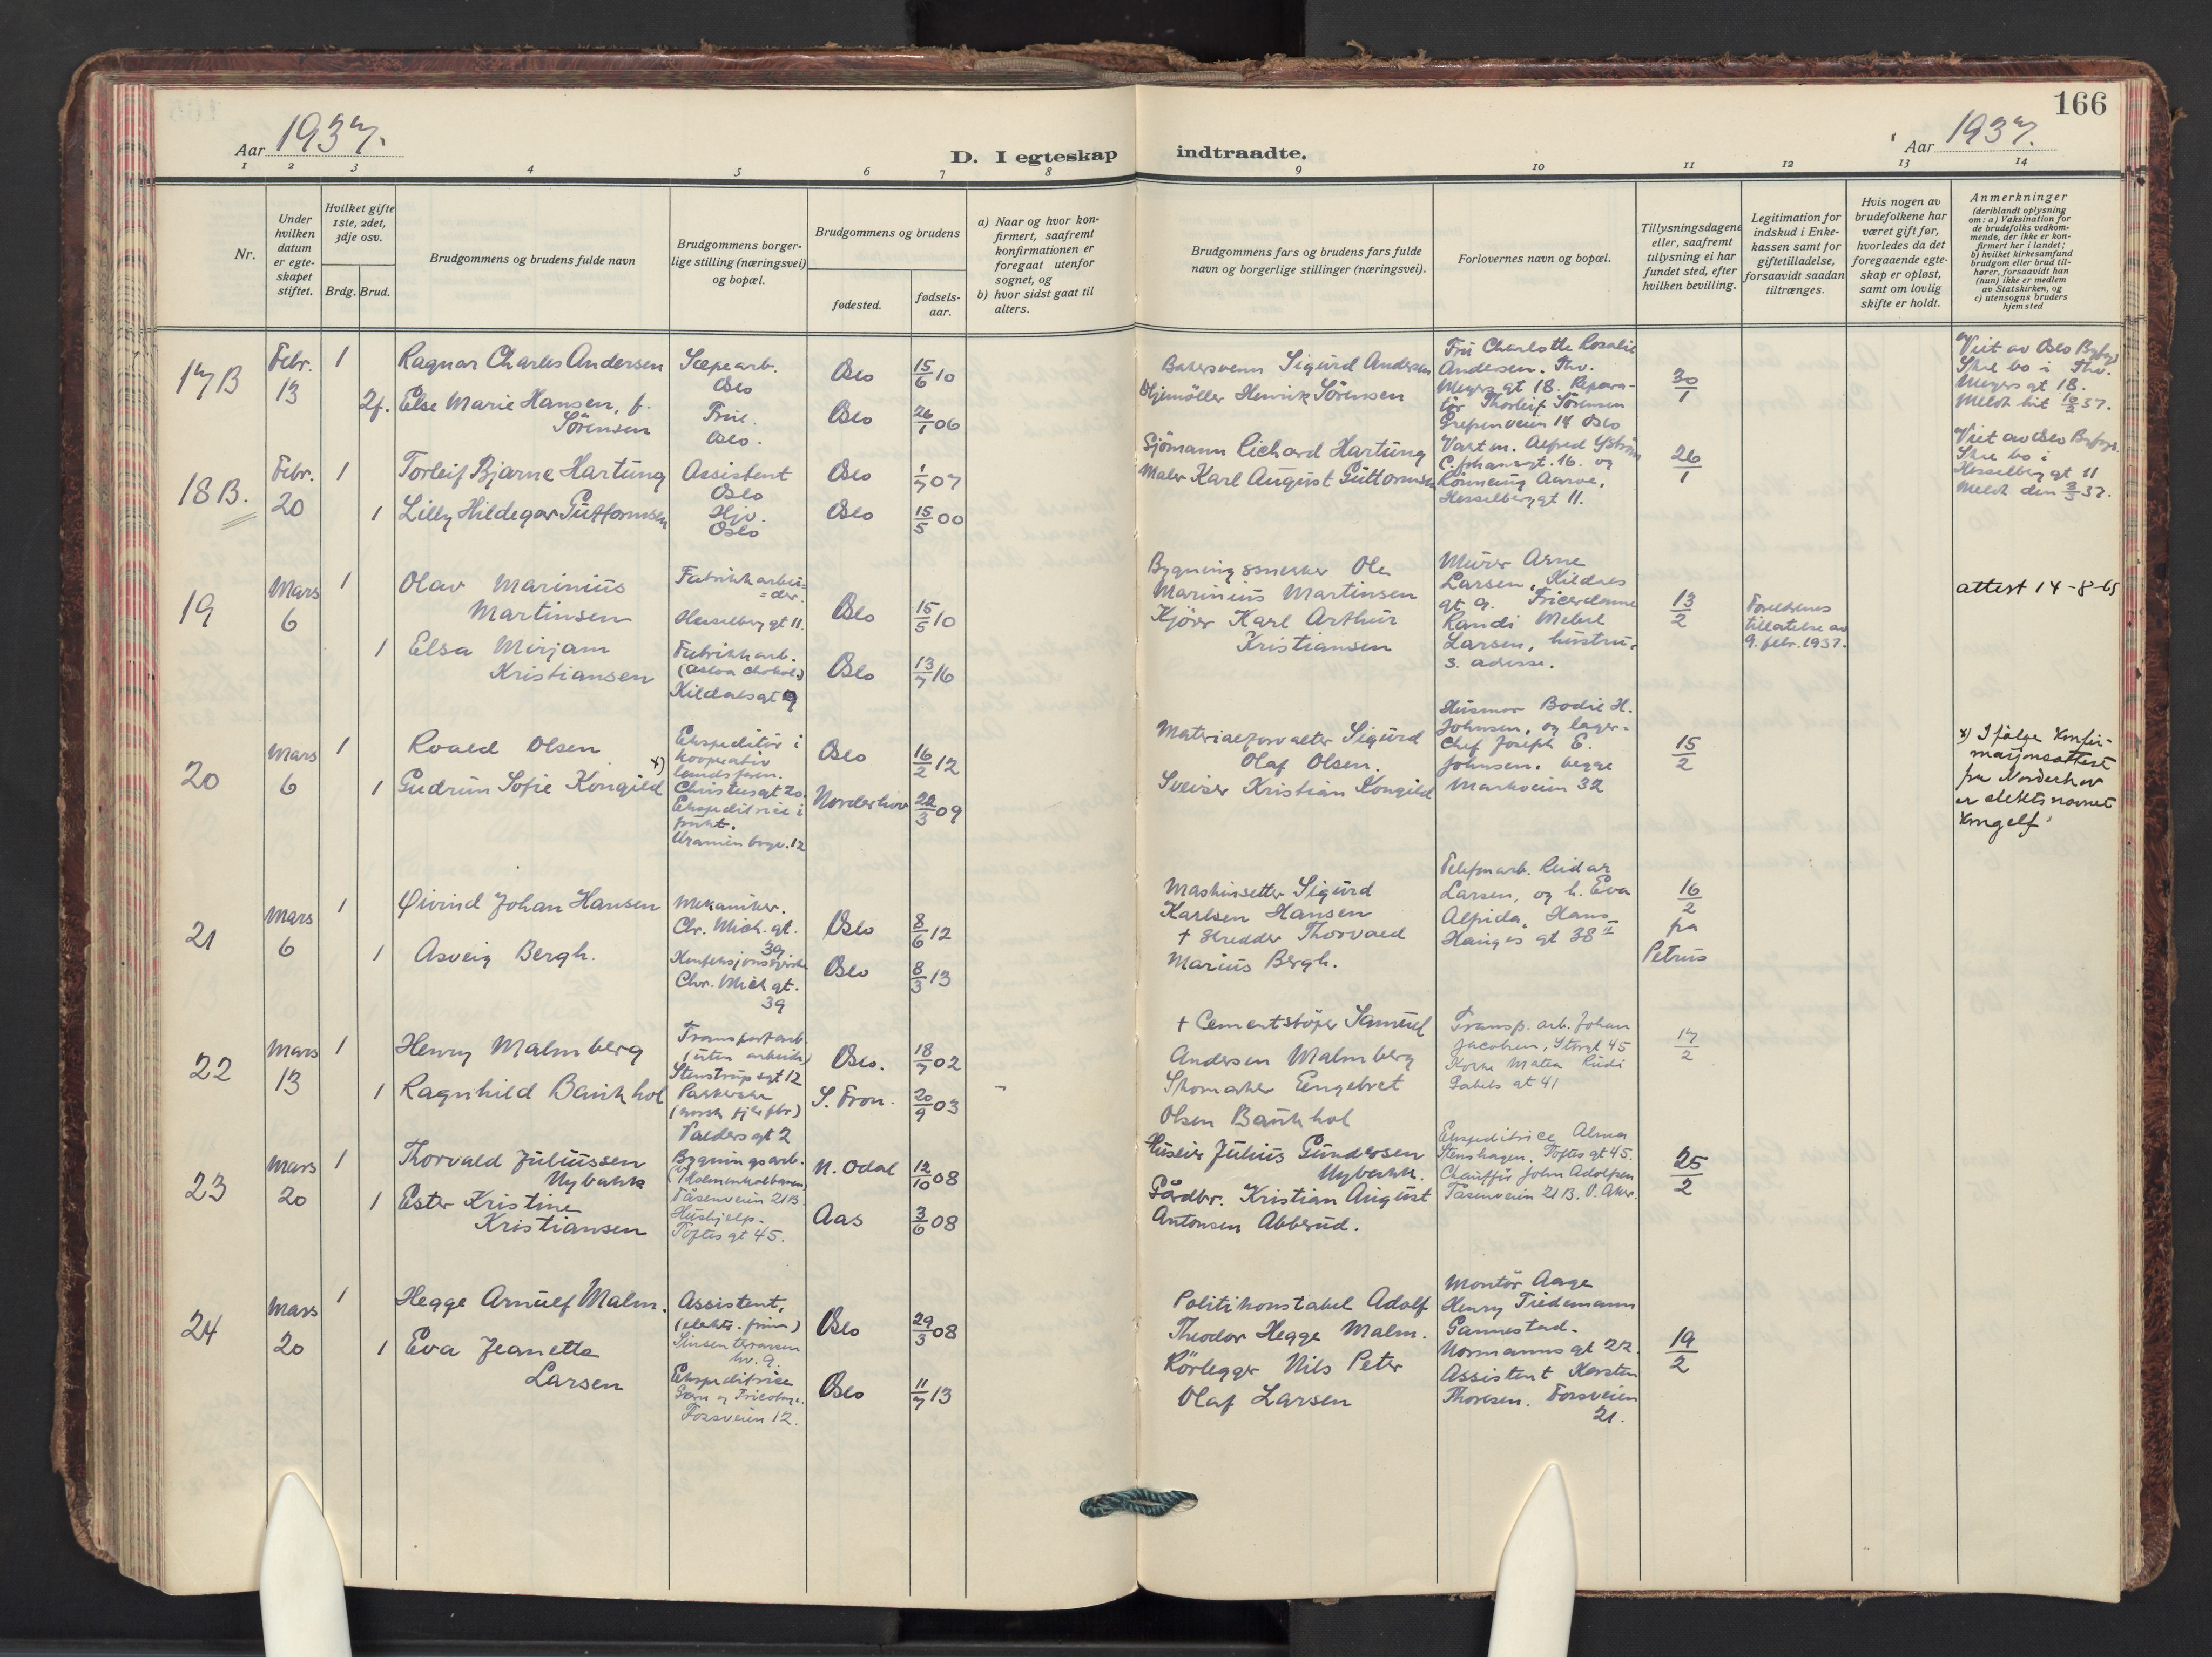 166
Aar 1937.
D. I egteskap
indtraadte.
Aar 1937.
1 2 3 4 5 6 7 8 9 10 11 12 13 14
Nr.
Under
hvilken
datum
er egte-
skapet
stiftet.
Hvilket gifte
1ste, 2det,
3dje osv.
Brdg. Brud.
Brudgommens og brudens fulde navn
Brudgommens borger-
lige stilling (næringsvei)
og bopæl.
Brudgommens og brudens
fødested.
fødsels-
aar.
a) Naar og hvor kon-
firmert, saafremt
konfirmationen er
foregaat utenfor
sognet, og
b) hvor sidst gaat til
alters.
Brudgommens fars og brudens fars fulde
navn og borgerlige stillinger (næringsvei).
Forlovernes navn og bopæl.
Tillysningsdagene
eller, saafremt
tillysning ei har
fundet sted, efter
hvilken bevilling.
Legitimation for
indskud i Enke-
kassen samt for
giftetilladelse,
forsaavidt saadan
tiltrænges.
Hvis nogen av
brudefolkene har
været gift før,
hvorledes da det
foregaaende egte-
skap er opløst,
samt om lovlig
skifte er holdt.
Anmerkninger
(deriblandt oplysning
om: a) Vaksination for
de brudefolks vedkom-
mende, der ikke er kon-
firmert her i landet;
b) hvilket kirkesamfund
brudgom eller brud til-
hører, forsaavidt han
(hun) ikke er medlem
av Statskirken, og
c) utensogns bruders
hjemsted
17B
Febr.
13
1
2f.
Ragnar Charles Andersen
Else Marie Hansen, f.
Sörensen
Sæpearb.
Oslo
Frue.
Oslo.
Oslo
Oslo
15/6 10
26/1 06
Bakersvenn Sigurd Andersen
Hjemöller Henrik Sörensen
Fru Charlotte Rosalie
Andersen. Thv.
Meyers gt 18. Repara-
tör Thorleif Sörensen
Grefsenveien 14 Oslo
30/1
Viet av Oslo Byfogd
Skal bo i Thv.
Meyers gt 18.
Meldt hit 37.
18B.
Febr.
20
1
1
Torleif Bjarne Hartung
Lilly Hildegar Guttormsen
Assistent
Oslo
Hjv.
Oslo
Oslo
Oslo
1/7 07
15/5 00
Sjömann Richard Hartung
Maler Karl August Guttormsen
Vaktm. Alfred
C. Johansgt. 16. og
Aarve.
Hesselberg gt 11.
26/1
Viet av Oslo Byfogd
Skal bo i
Hesselberg gt 11
Meldt den 37.
19
Mars
6
1
1
Olav Marinius
Martinsen
Elsa Mirjam
Kristiansen
Fabrikkarbei-
=der.
Hesselberg gt 11.
Fabrikkarb.
Kildalsgt 9
Oslo
Oslo
15/5 10
13/7 16
Bygningssnekker Ole
Marinius Martinsen
Kjörer Karl Arthur
Kristiansen
Murer Arne
Larsen, Kildals
gt 9. Friserdame
Randi Merle
Larsen, hustru,
s. adresse.
13/2
Foreldrenes
tillatelse av
9. febr. 1937.
attest 14-8-65
20
Mars
6
1
1
Roald Olsen
Gudrun Sofie Kongild x)
Ekspeditör i
Kooperativ
landsforen.
Christies gt 20.
Ekspeditrice i
frukt.
Uranienborgv. 12
Oslo
Norderhov
16/2 12
22/3 09
Materialforvalter Sigurd
Olaf Olsen.
Sveiser Kristian Kongild
Husmor Bodil H.
Johnsen, og lager-
chef Joseph E.
Johnsen, begge
Markveien 32
15/2
x) Ifölge konfir-
masjonsattest
fra Norderhov
er slektsnavnet
Kongelf
21
Mars
6
1
1
Øivind Johan Hansen
Asveig Bergh.
Mekaniker.
Chr. Mich. gt.
39
Chr. Mich gt.
39
Oslo
Oslo
8/6 12
8/3 13
Maskinsetter Sigurd
Karlsen Hansen
+ Skredder Thorvald
Marius Bergh.
Telefonarb. Reidar
Larsen, og h. Eva
Alfida, Hans
Hauges gt 38 II
16/2
fra
Petrus
22
Mars
13
1
1
Henry Malmberg
Ragnhild Baukhol
Transportarb.
(uten arbeide)
Stenstrups gt 12
Pakkerske
Valdersgt 2
Oslo.
S. Fron.
18/7 02
20/9 03
-
+ Cementstöper Samuel
Andersen Malmberg
Skomaker Engebret
Olsen Baukhol
Transp. arb. Johan
Jacobsen, Storgt 45
Kokke Matea Rudi
Gabels gt 41
17/2
23
Mars
20
1
1
Thorvald Juliussen
Nybakk
Ester Kristine
Kristiansen
Bygningsarb.
(Holmenkolbanen)
Tåsenveien 21B.
Hushjelp.
Toftes gt 45.
N. Odal
Aas
12/10 08
3/6 08
Huseier Julius Gundersen
Nybakk.
Gårdbr. Kristian August
Antonsen Abberud.
Ekspeditrice Alma
Stenshagen, Toftes gt 45.
Chauffør John Adolfsen
Tåsenveien 21B. V. Aker.
25/2
24
Mars
20
1
1
Hegge Arnulf Malm.
Eva Jeanette
Larsen
Assistent,
(elektr. firma)
Sinsenterrassen
hv. 9.
Ekspeditrise
Garn og Tricotage.
Fossveien 12.
Oslo
Oslo
29/3 08
11/7 13
Politikonstabel Adolf
Theodor Hegge Malm.
Rörlegger Nils Peter
Olaf Larsen
Montör Aage
Henry Tiedemann
Gannestad.
Normanns gt 22.
Assistent Karsten
Thoresen. Fossveien
21.
19/2